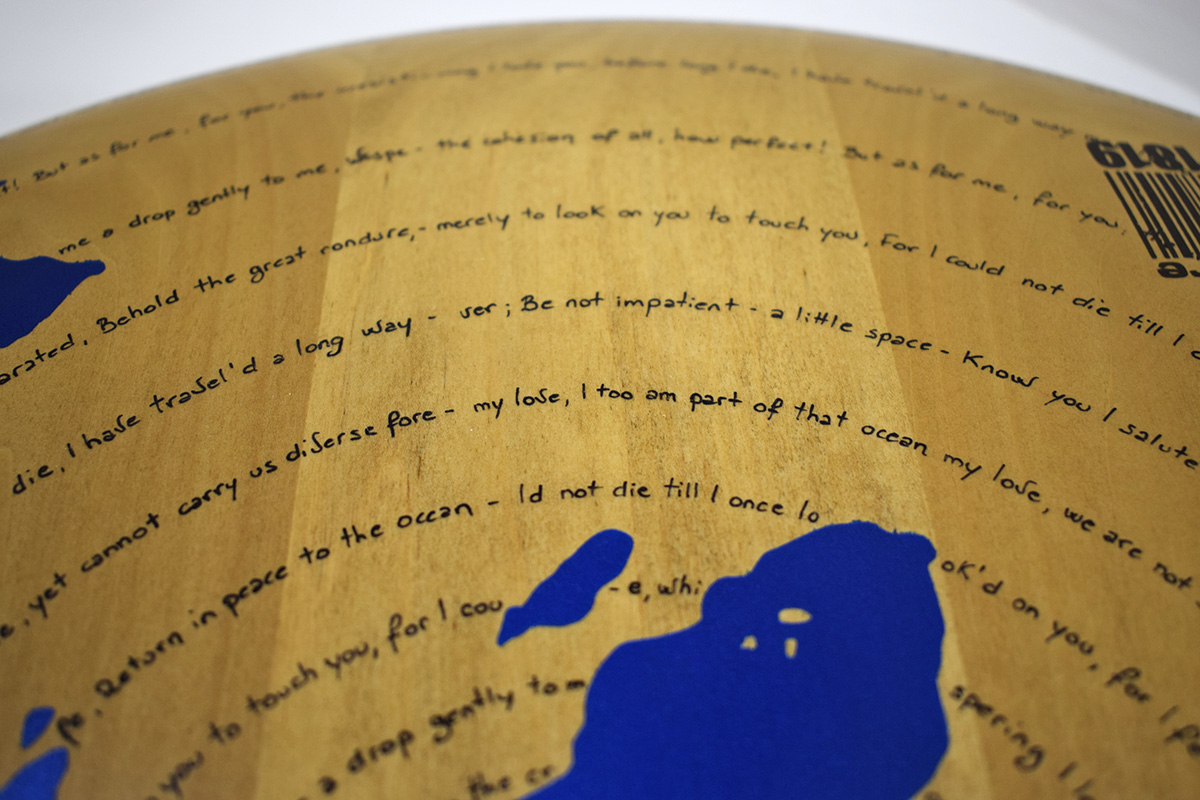 ! But as for me, for you, the I love you, before long I die, I have travel'd a long way
me a drop gently to me, Whispe - the cohesion of all, how perfect! But as for me, for you,
1819
arated, Behold the great rondure, - merely to look on you to touch you, For I could not die till I o
die, I have travel'd a long way - ver; Be not impatient - a little space - Know you I salute
e, yet cannot carry us diverse fore - my love, I too am part of that ocean my love, we are not
pe, Return in peace to the ocean - ld not die till I once lo ok'd on you, for I fe
you to touch you, for I cou - e, whi spering I
a drop gently to m
the